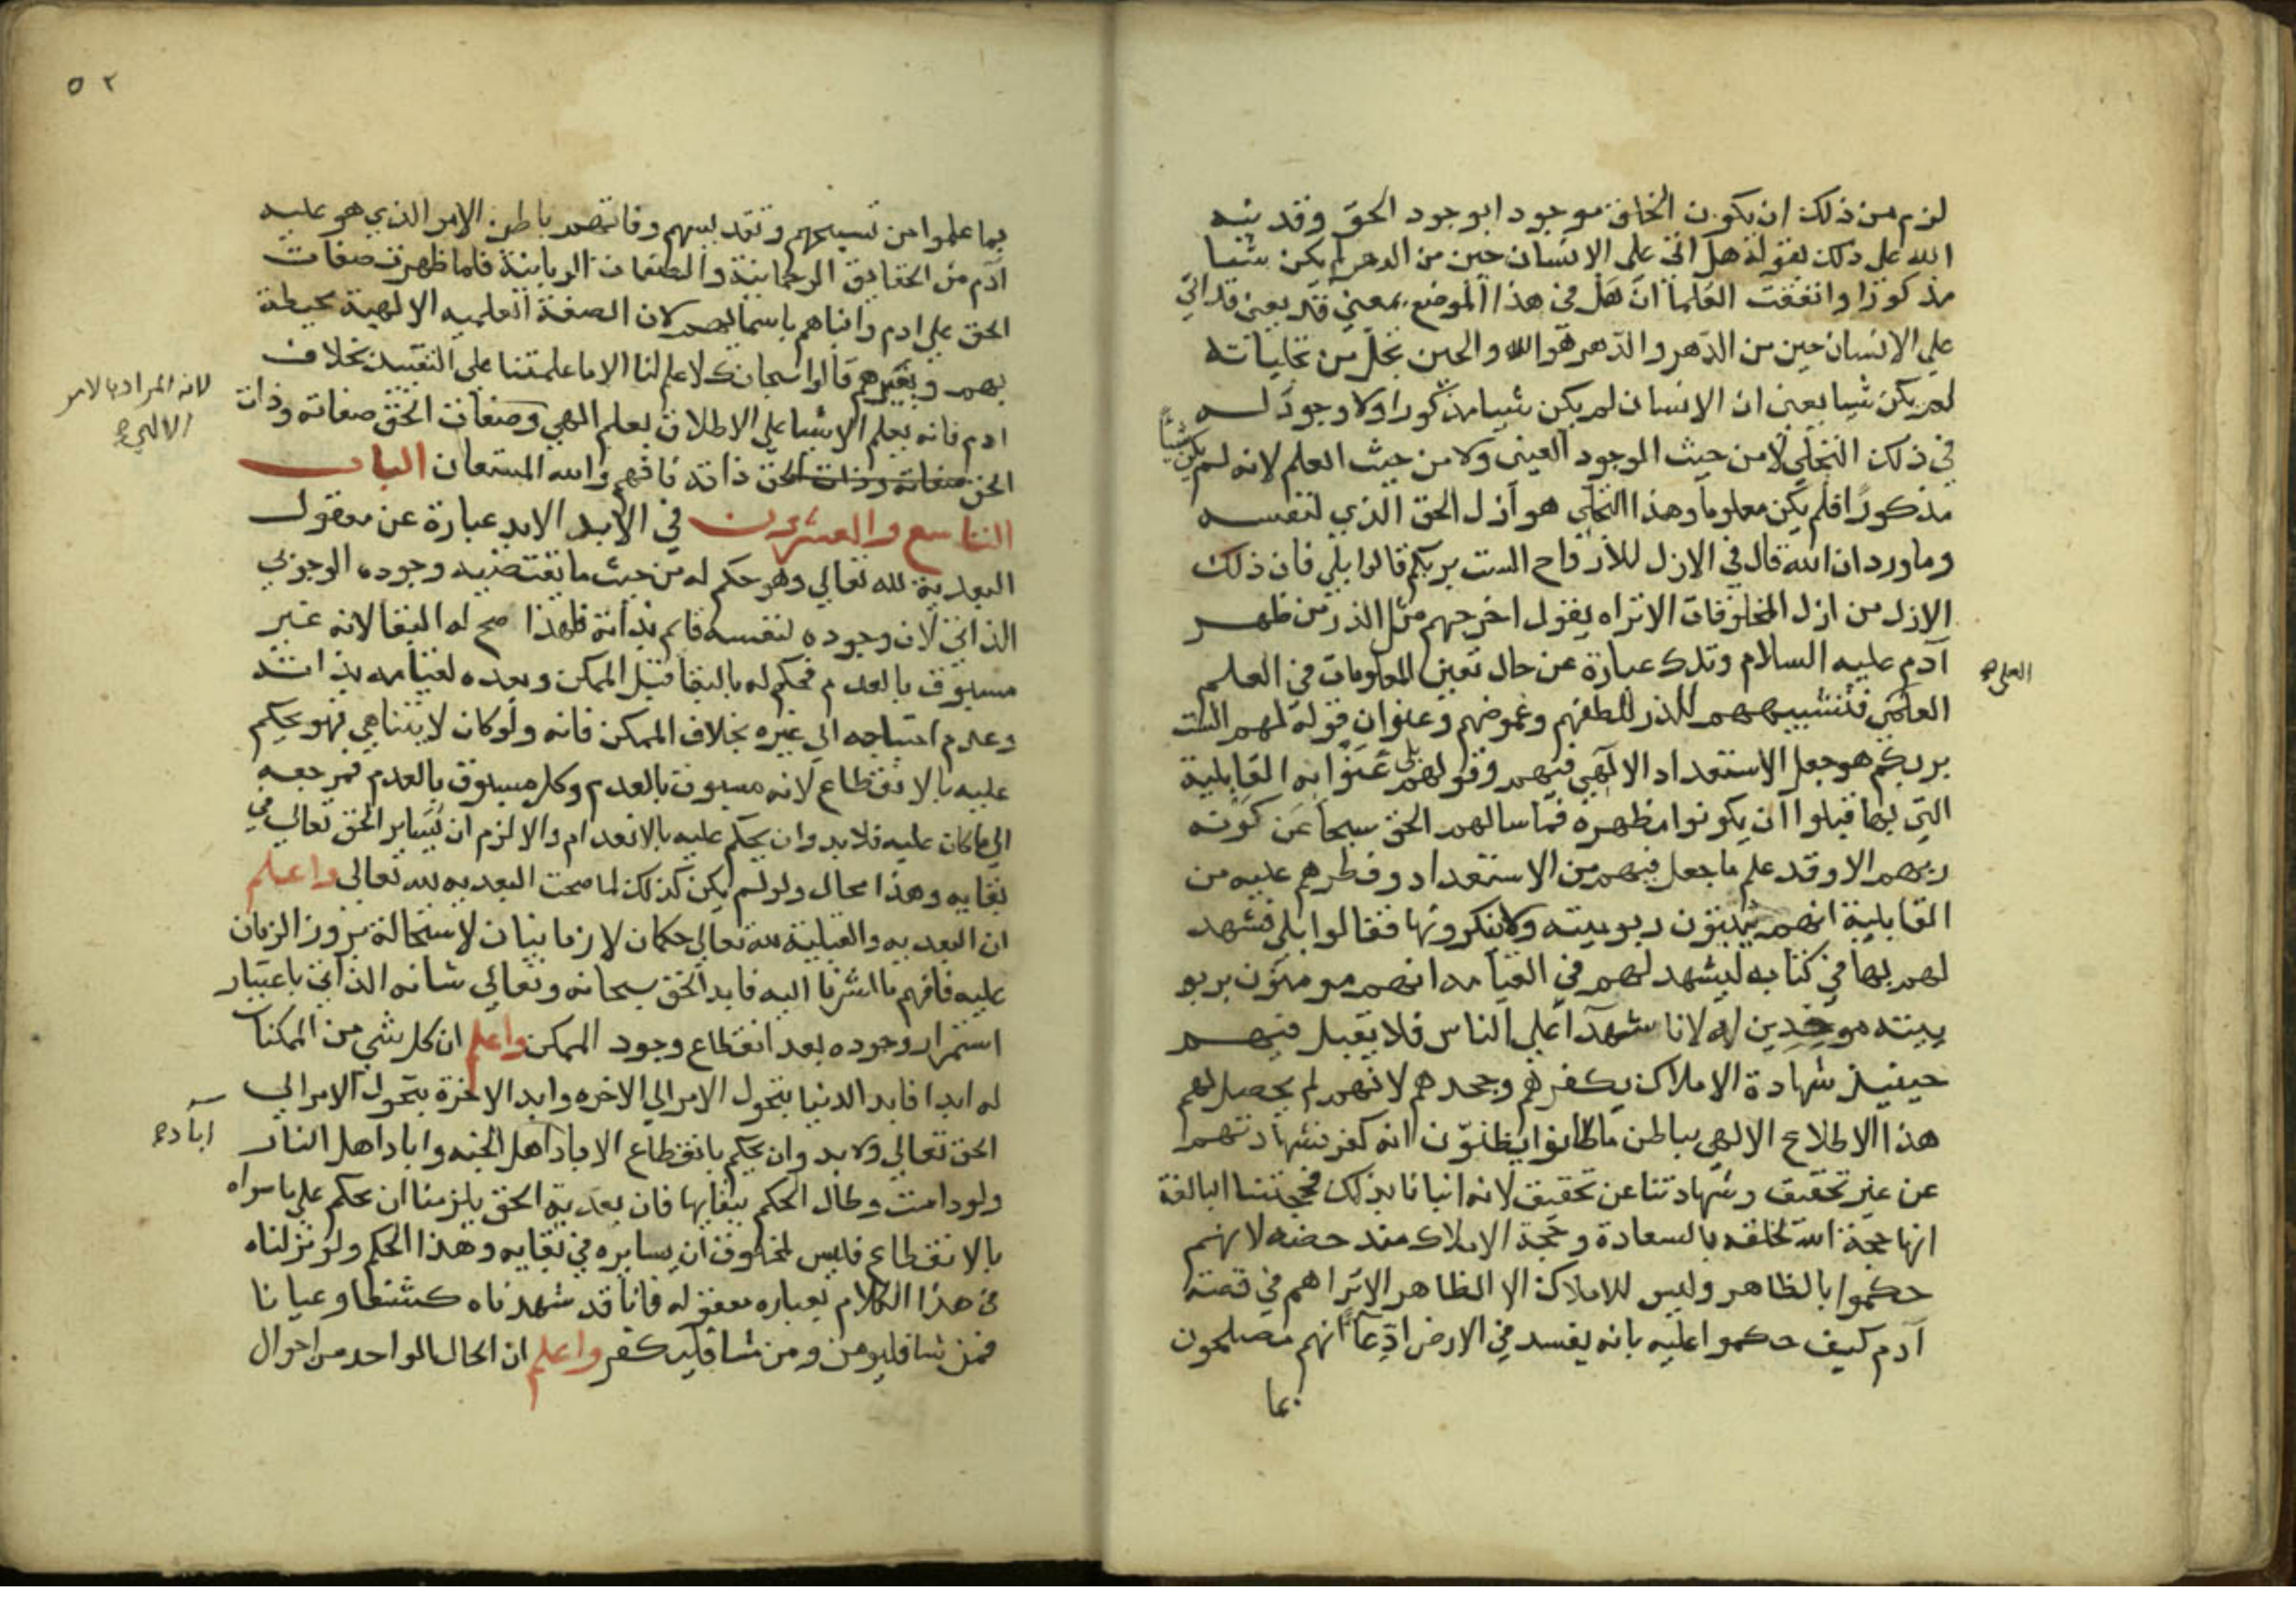 لزم من ذلك ان يكون الخلق موجودا بوجود الحق وقد نبه
الله على ذلك بقوله هل اتى على الانسان حين من الدهر لم يكن شيئا
مذكورا واتفقت العلماء ان هل في هذا الموضع بمعنى قد يعنى قد اتى
على الانسان حين من الدهر والدهر هو الله والحين تجل من تجلياته
لم يكن شيا يعنى ان الانسان لم يكن شيا مذكورا ولا وجود له
في ذلك التجلي لا من حيث الوجود العينى ولا من حيث العلم لانه لم يكن شيئاً
مذكورا فلم يكن معلوما وهذا التجلي هو ازل الحق الذي لنفسه
وما ورد ان الله قال في الازل للارواح الست بربكم قالوا بلى فان ذلك
الازل من ازل المخلوقات الا تراه يقول اخرجهم مثل الذر من ظهر
آدم عليه السلام وتلك عبارة عن حال تعين المعلومات في العلم
العلى
العلمى فتشبيههم للذر للطفهم وغموضهم وعنوان قوله لهم الست
بربكم هو جعل الاستعداد الالهي فيهم وقولهم بلى عنوا به القابلية
التي بها قبلوا ان يكونوا مظهره فما سالهم الحق سبحا عن كونه
ربهم الا وقد علم ما جعل فيهم من الاستعداد وفطرهم عليه من
القابلية انهم يثبتون ربوبيته ولا ينكرونها فقالوا بلى فشهد
لهم بها في كتابه ليشهد لهم في القيامه انهم مومنون بربو
بيته موحدين له لانا شهدآ على الناس فلا يقبل فيهم
حينيذ شهادة الاملاك بكفرهم وجحدهم لانهم لم يحصل لهم
هذا الاطلاع الالهي بباطن ما كانوا يظنون انه كفر فشهادتهم
عن غير تحقيق وشهادتنا عن تحقيق لانه انبانا بذلك فحجتنا البالغة
انها حجة الله لخلقه بالسعادة وحجة الاملاك داحضه لانهم
حكموا بالظاهر وليس للاملاك الا الظاهر الا تراهم في قصة
آدم كيف حكموا عليه بانه يفسد في الارض ادعآ انهم مصلحون
بما
٥٢
بما علموا من تسبيحهم وتقديسهم وفاتهم باطن الامر الذي هو عليه
آدم من الحقايق الرحمانية والصفات الربانية فلما ظهرت صفات
الحق على ادم وانباهم باسمايهم لان الصفة العلميه الالهية محيطة
بهم وبغيرهم قالوا سبحانك لا علم لنا الا ما علمتنا على التقييد بخلاف
لانه المراد بالامر
الالهي
ادم فانه يعلم الاشيا على الاطلاق بعلم الهي وصفات الحق صفاته وذات
الحق صفاته وذات الحق ذاته فافهم والله المستعان الباب
التاسع والعشرون في الابد الابد عبارة عن معقول
البعدية لله تعالى وهو حكم له من حيث ما يقتضيه وجوده الوجوبي
الذاتي لان وجوده لنفسه قايم بذاته فلهذا صح له البقا لانه غير
مسبوق بالعدم فحكم له بالبقا قبل الممكن وبعده لقيامه بذاته
وعدم احتياجه الى غيره بخلاف الممكن فانه ولو كان لا يتناهي فهو يحكم
عليه بالانقطاع لانه مسبوق بالعدم وكل مسبوق بالعدم فمرجعه
الى ما كان عليه فلا بد وان يحكم عليه بالانعدام والا لزم ان يساير الحق تعالى في
بقايه وهذا محال ولو لم يكن كذلك لما صحت البعديه لله تعالى واعلم
ان البعديه والقبلية لله تعالى حكمان لا زمانيان لاستحالة مرور الزمان
عليه فافهم ما اشرنا اليه فابد الحق سبحانه وتعالى شانه الذاتي باعتبار
استمرار وجوده بعد انقطاع وجود الممكن واعلم ان كل شي من الممكنات
له ابد فابد الدنيا بتحول الامر الى الاخره وابد الاخرة بتحول الامر الى
الحق تعالى ولا بد وان يحكم بانقطاع الاباد اهل الجنه واباد اهل النار
آباد
ولو دامت وطال الحكم ببقايها فان بعدية الحق يلزمنا ان نحكم على ما سواه
بالانقطاع فليس لمخلوق ان يسايره في بقايه وهذا الحكم ولو نزلناه
في هذا الكلام بعباره معقوله فانا قد شهدناه كشفا وعيانا
فمن شا فليومن ومن شا فليكفر واعلم ان الحال الواحد من احوال